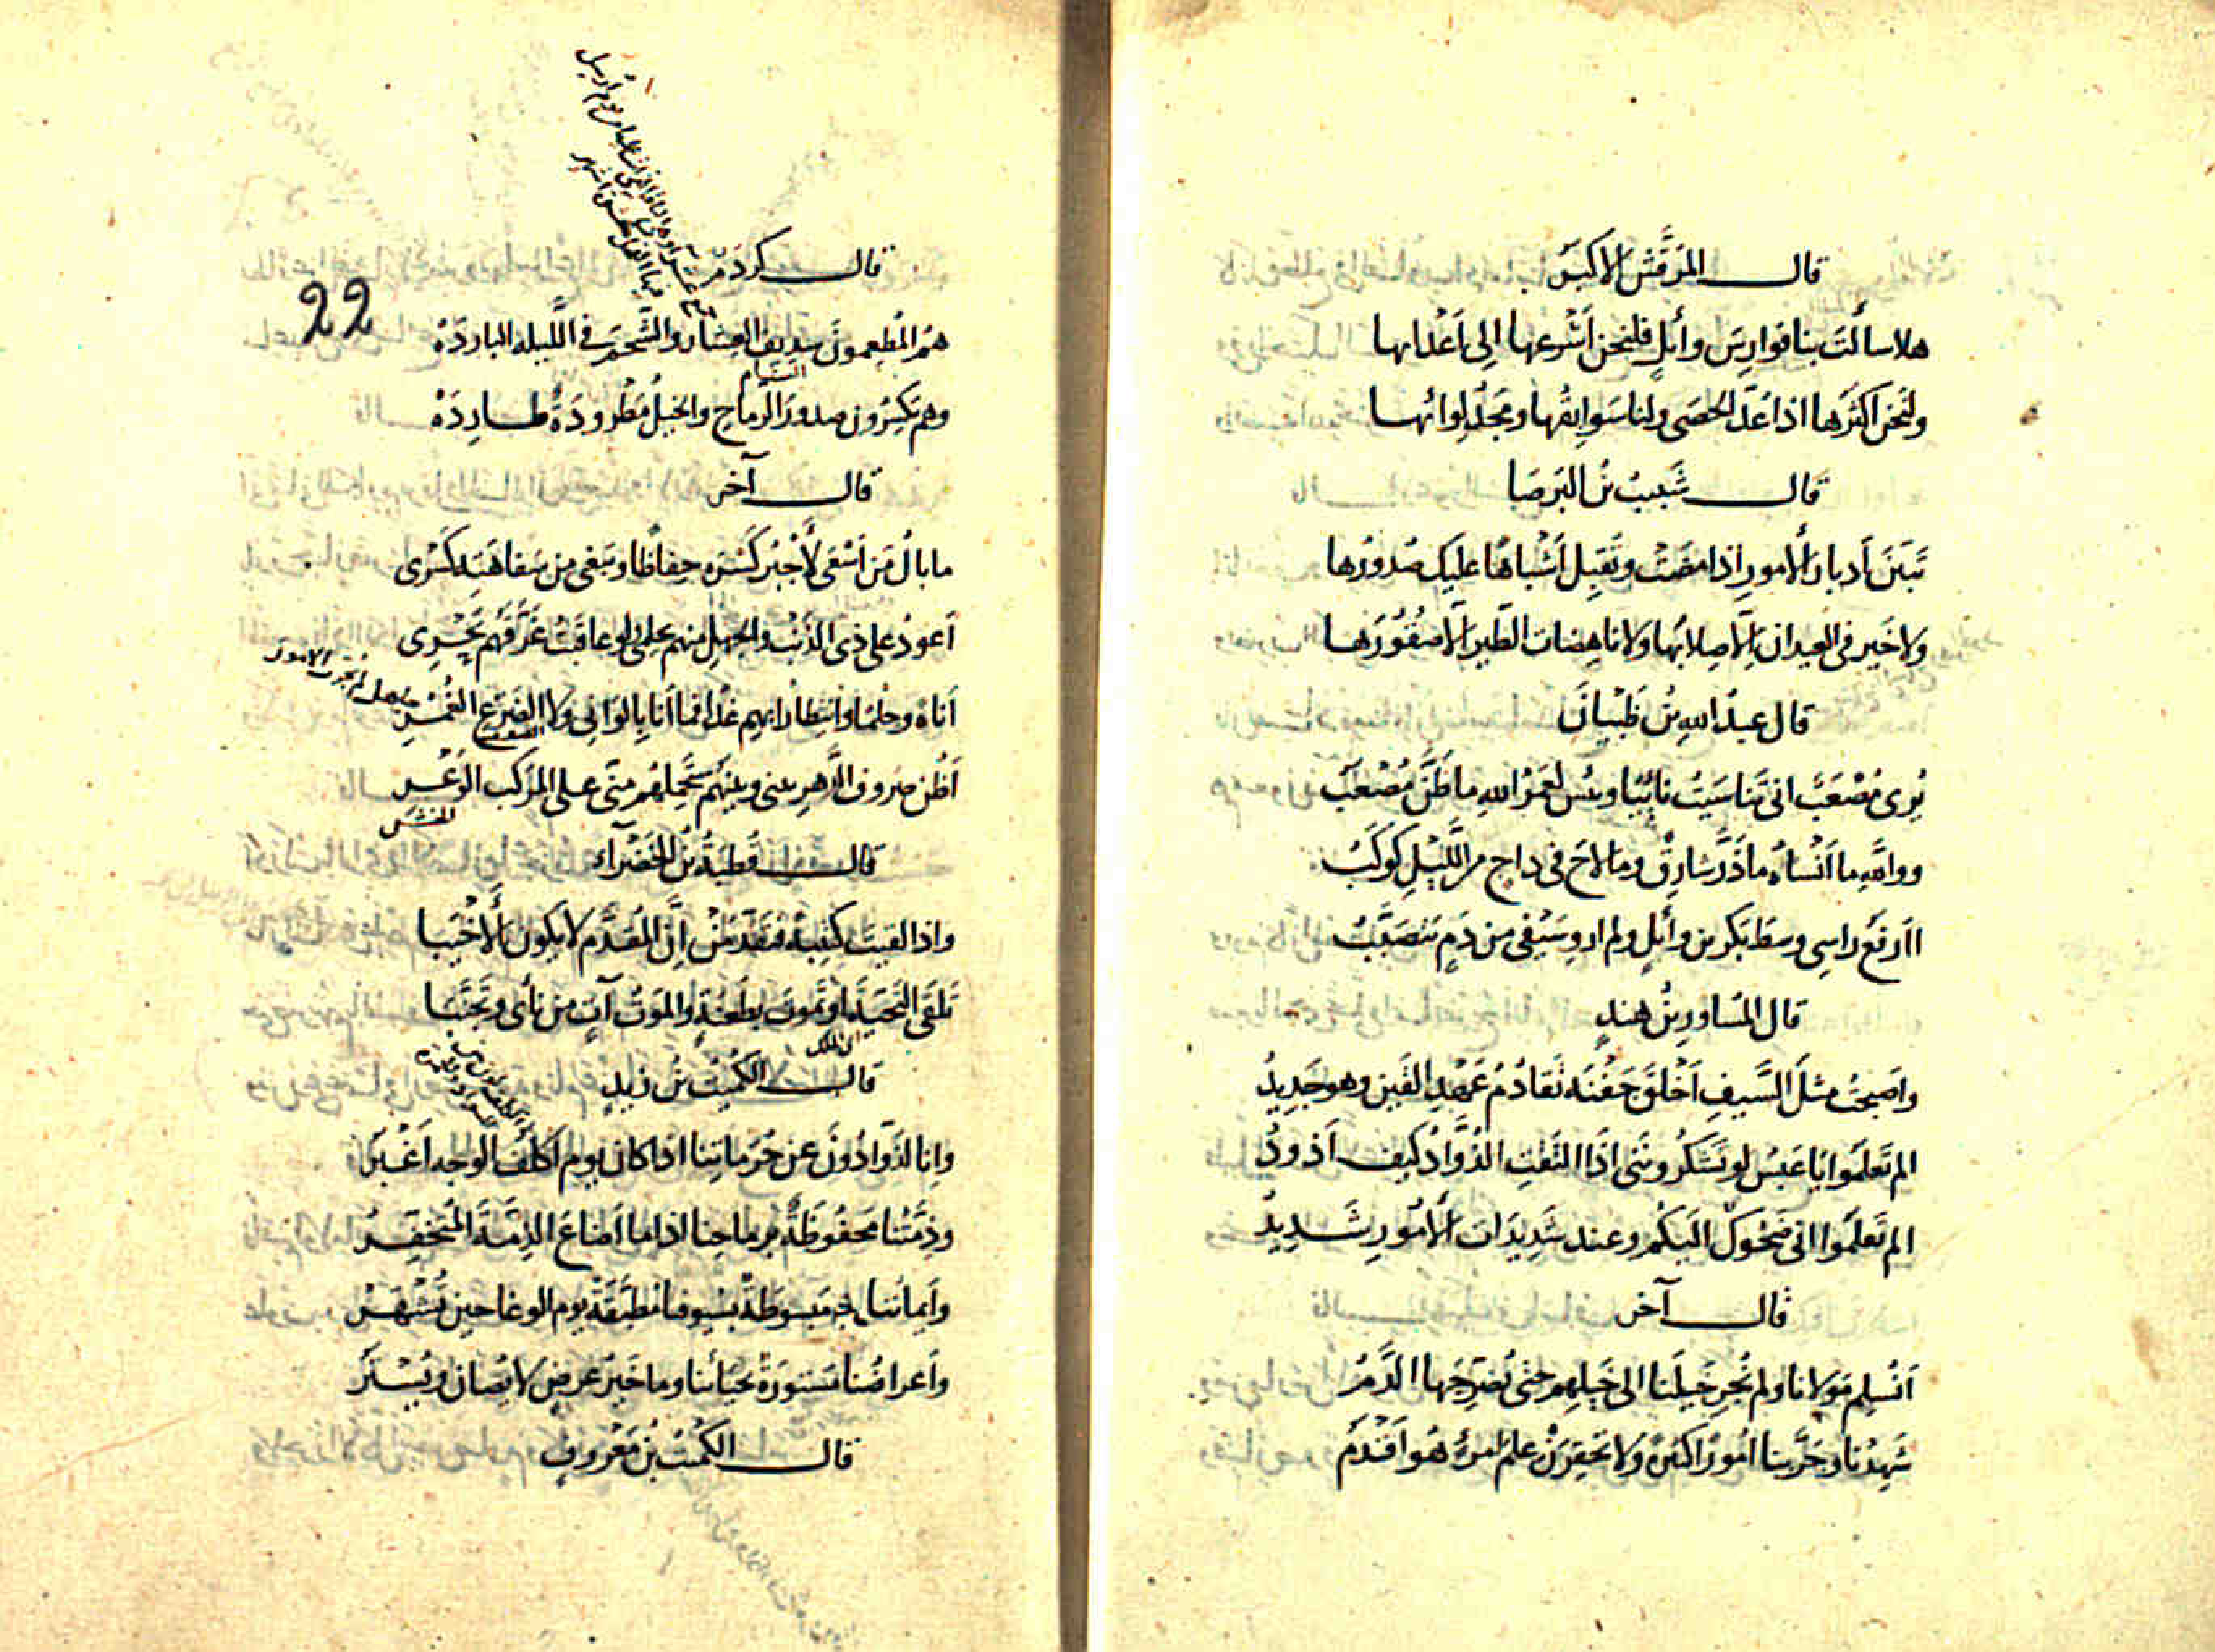 قال المرقش الاكبر
هلا سالت بنا فوارس وائل فلنحن اسرعها الى اعدائها
ولنحن اكثرها اذا عد الحصى ولنا سوابقها ومجد لوائها
قال شبيب بن البرصا
تبين ادبار الامور اذا مضت وتقبل اشباها عليك صدورها
ولا خير في العيدان الا صلابها ولا ناهضات الطير الا صقورها
قال عبد الله بن ظبيان
يرى مصعب اني تناسيت نائبا وبئس لعمر الله ما ظن مصعب
ووالله ما انساه ما ذر شارق وما لاح في داج من الليل كوكب
اارفع راسي وسط بكر بن وائل ولم ارو سيفي من دم يتصبب
قال المساور بن هند
واصبحت مثل السيف اخلق جفنه تقادم عهد القين وهو جديد
الم تعلموا يا عبس لو تشكرونني اذا التفت الذواد كيف اذود
الم تعلموا اني ضحوك اليكم وعند شديدات الامور شديد
قال آخر
انسلم مولانا ولم تجر خيلنا الى خيلهم حتى يضرجها الدم
شهدنا وجربنا امورا كثيرة ولا تحقرن علم امرئ هو اقدم
22
قال كردم
هم المطعمون سديف العشار والشحم في الليله البارده
السنام
وهم يكسرون صدور الرماح والخيل مطرودة طارده
قال آخر
ما بال من اسعى لاجبر كسره حفاظا ويبغي من سفاهته كسرى
اعود على ذى الذنب والجهل منهم بحلمي ولو عاقبت غرقهم بحرى
اناة وحلما وانتظارا بهم غدا فما انا بالواني ولا الضرع الغمر
اظن صروف الدهر بيني وبينهم ستحملهم مني على المركب الوعر
قال قطبة بن الخضرآء
واذا لقيت كتيبة فتقدمن ان المقدم لا يكون الاخيبا
تلقى التحية او تموت بطعنة والموت آت من نأى وتجنبا
الملك
قال الكميت بن زيد
وانا لذوادون عن حرماتنا اذا كان يوم اكلف الوجه اغبر
وذمتنا محفوظة برماحنا اذا ما اضاع الذمة المتخفر
وايماننا مبسوطة بسيوفنا مطبقة يوم الوغا حين تشهر
واعراضنا مستورة بحيائنا وما خير عرض لا يصان ويستر
قال الكميت بن معروف